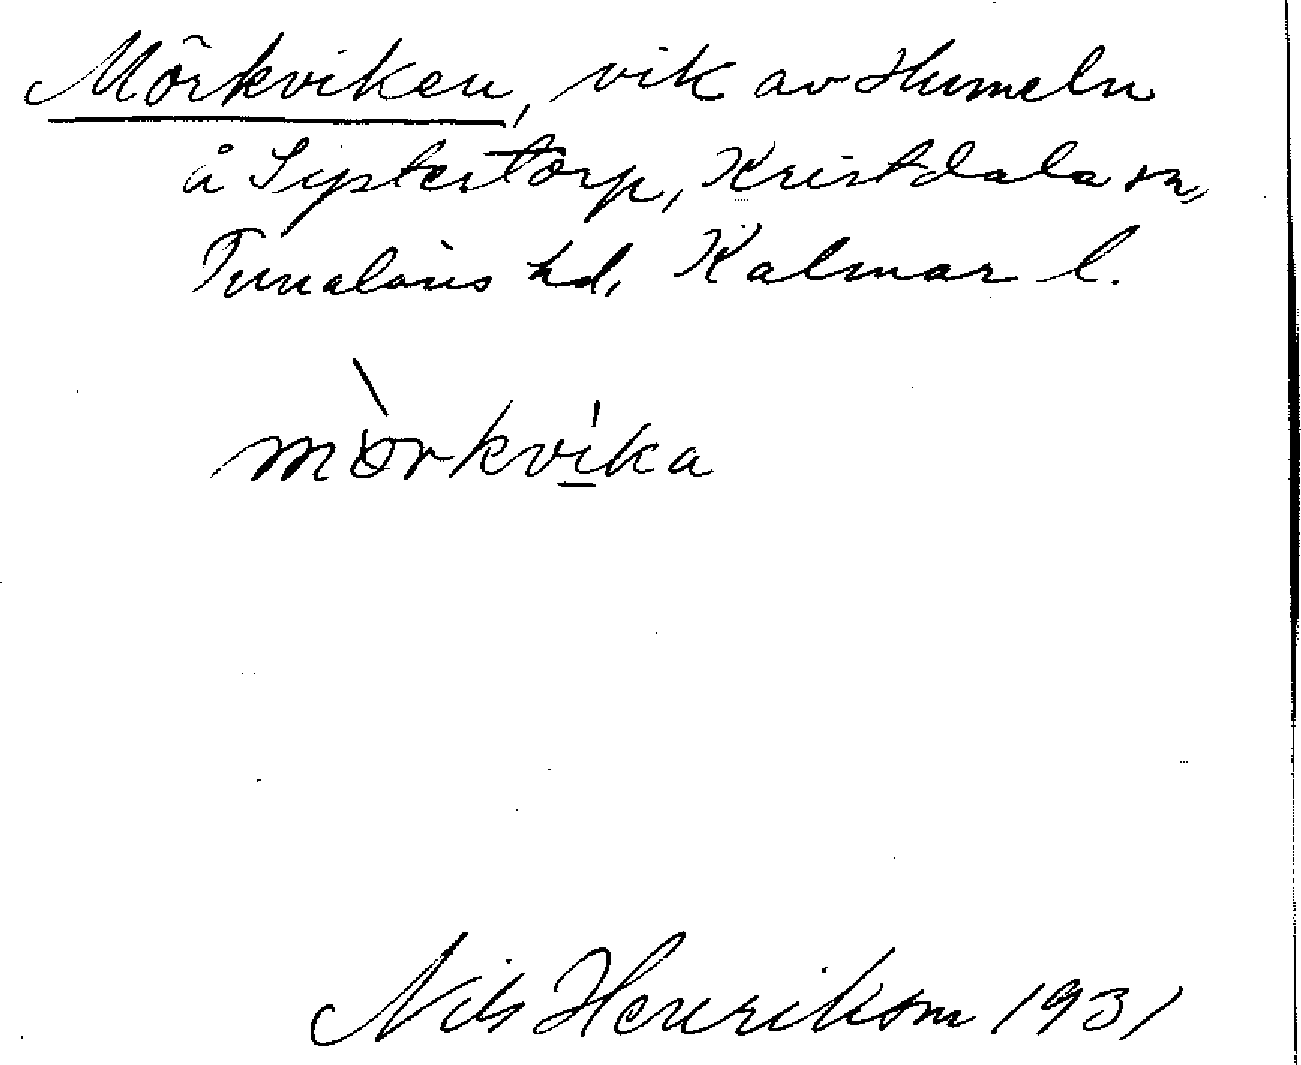 Mörkviken, vik av Humeln
å Systertorp, Kristdala sn,
Tunaläns hd, Kalmar l.
mòrkvi̱ka
Nils Henrikson 1931